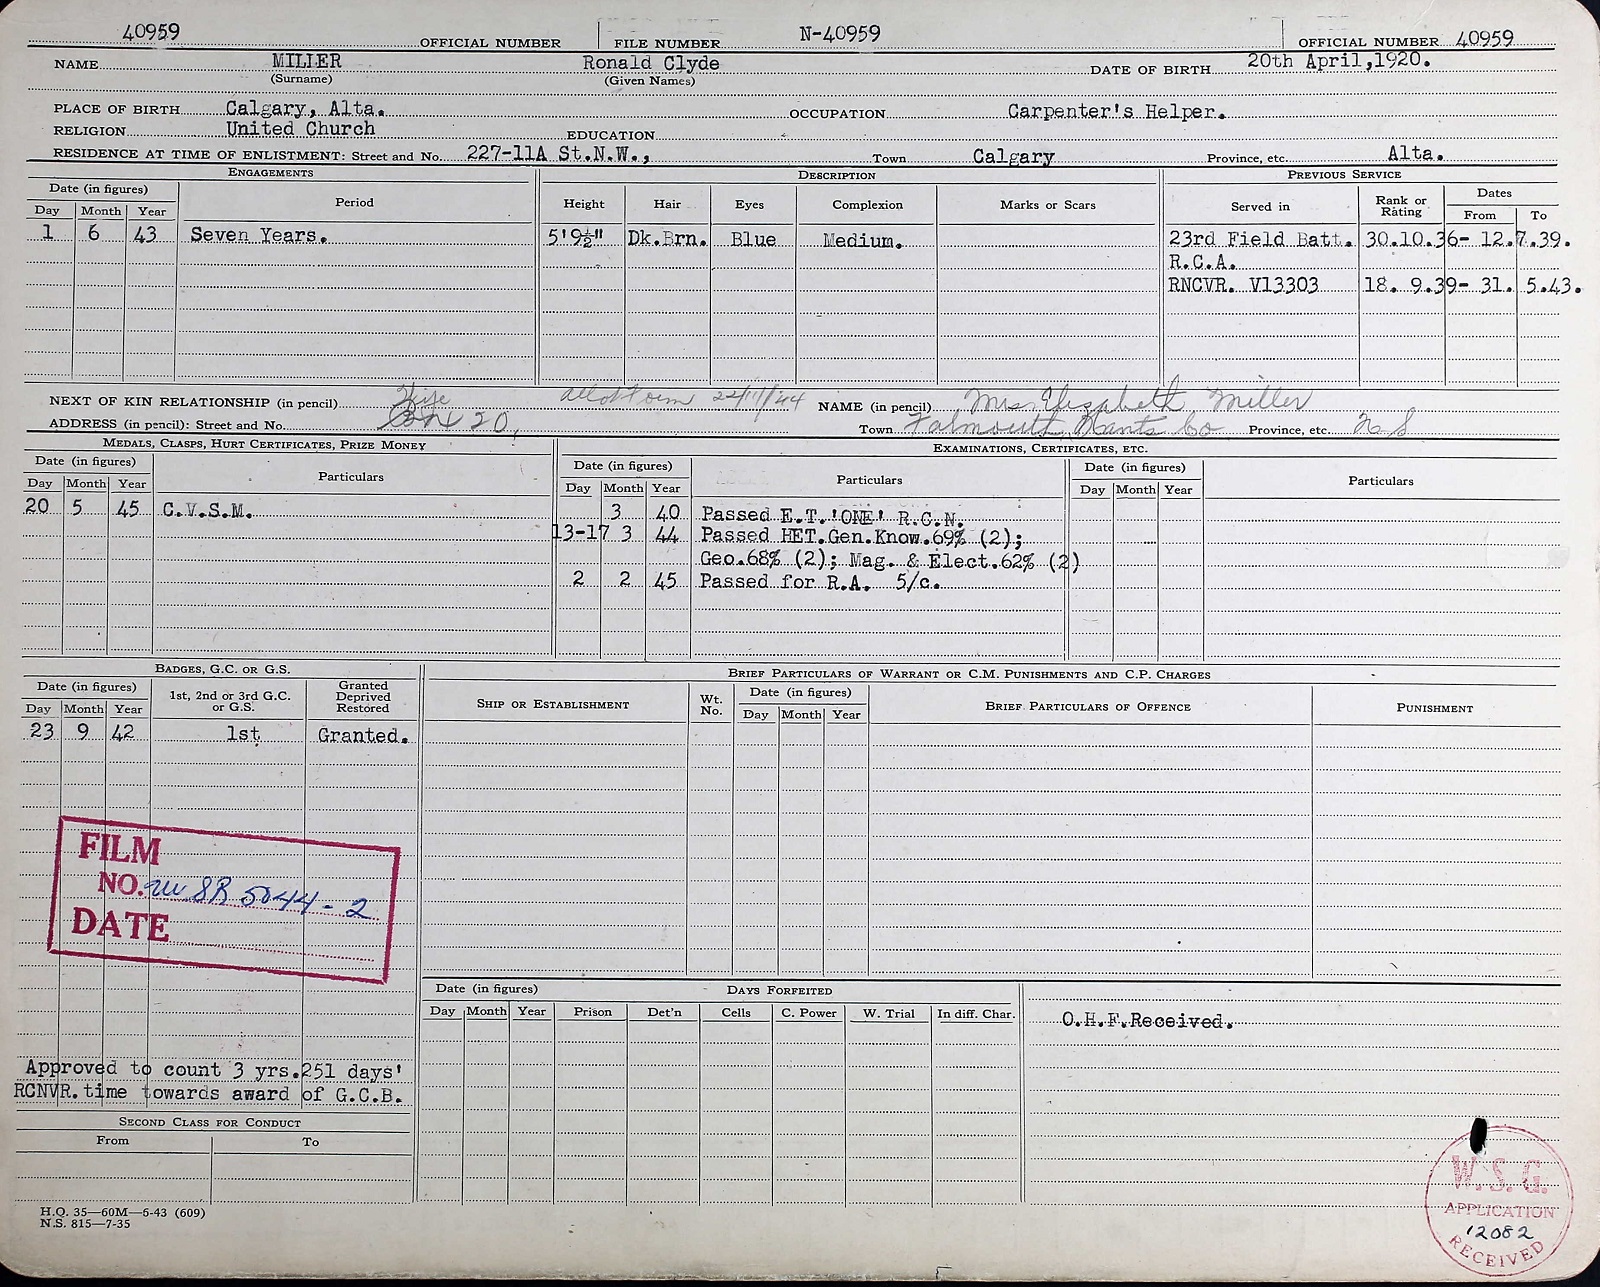 40959 OFFICIAL NUMBER FILE NUMBER N-40959 OFFICIAL NUMBER 40959
NAME MILLER Ronald Clyde DATE OF BIRTH 20th April,1920.
(Surname) (Given Names)
PLACE OF BIRTH Calgary, Alta. OCCUPATION Carpenter's Helper.
RELIGION United Church EDUCATION
RESIDENCE AT TIME OF ENLISTMENT: Street and No. 227-11A St.N.W., Town Calgary Province, etc. Alta.
ENGAGEMENTS DESCRIPTION PREVIOUS SERVICE
Date (in figures) Period Height Hair Eyes Complexion Marks or Scars Served in Rank or Rating Dates
Day Month Year From To
1 6 43 Seven Years. 5'9½" Dk.Brn. Blue Medium. 23rd Field Batt. 30.10.36- 12.7.39.
R.C.A.
RNCVR. V13303 18. 9.39- 31. 5.43.
NEXT OF KIN RELATIONSHIP (in pencil) Wife Allot Form 22/11/44 NAME (in pencil) Mrs. Elizabeth Miller
ADDRESS (in pencil): Street and No. Box 20, Town Falmouth, Hants Co Province, etc. N S
MEDALS, CLASPS, HURT CERTIFICATES, PRIZE MONEY EXAMINATIONS, CERTIFICATES, ETC.
Date (in figures) Particulars Date (in figures) Particulars Date (in figures) Particulars
Day Month Year Day Month Year Day Month Year
20 5 45 C.V.S.M. 3 40 Passed E.T.'ONE' R.C.N.
13-17 3 44 Passed HET.Gen.Know.69% (2);
Geo.68% (2); Mag. & Elect.62% (2)
2 2 45 Passed for R.A. 5/c.
BADGES, G.C. OR G.S. BRIEF PARTICULARS OF WARRANT OR C.M. PUNISHMENTS AND C.P. CHARGES
Date (in figures) 1st, 2nd or 3rd G.C. or G.S. Granted Deprived Restored SHIP OR ESTABLISHMENT Wt. No. Date (in figures) BRIEF PARTICULARS OF OFFENCE PUNISHMENT
Day Month Year Day Month Year
23 9 42 1st Granted.
FILM
NO. SR 5044-2
DATE
Date (in figures) DAYS FORFEITED
Day Month Year Prison Det'n Cells C. Power W. Trial In diff. Char.
O.H.F.Received.
Approved to count 3 yrs.251 days'
RCNVR.time towards award of G.C.B.
SECOND CLASS FOR CONDUCT
From To
H.Q. 35—60M—6-43 (609)
N.S. 815—7-35
W.S.G.
APPLICATION
12082
RECEIVED